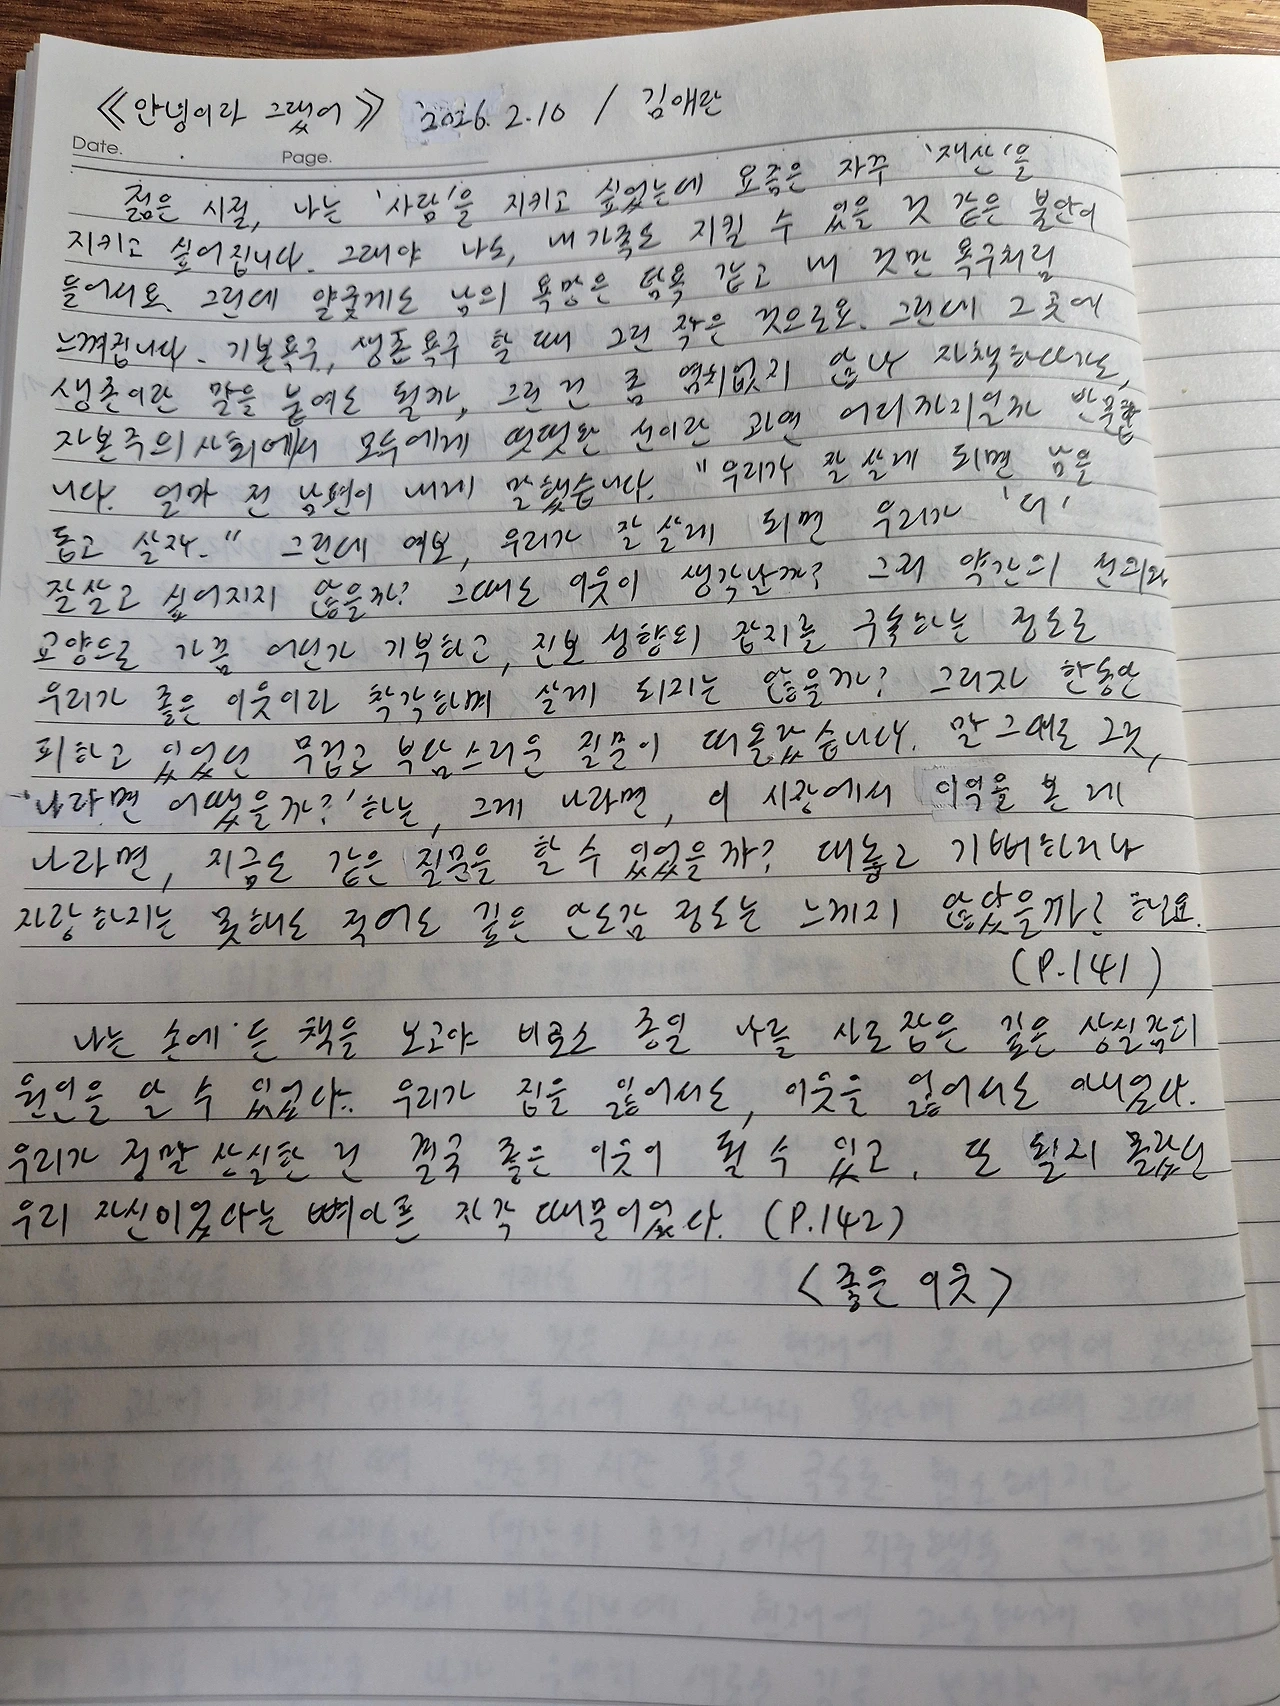 《안녕이라 그랬어》 2026. 2.10 / 김애란
Date. Page.
젊은 시절, 나는 '사람'을 지키고 싶었는데 요즘은 자꾸 '재산'을
지키고 싶어집니다. 그래야 나도, 내 가족도 지킬 수 있을 것 같은 불안이
들어서요. 그런데 얄궂게도 남의 욕망은 탐욕 같고 내 것만 욕구처럼
느껴집니다. 기본욕구, 생존욕구 할 때 그런 작은 것으로요. 그런데 그곳에
생존이란 말을 붙여도 될까, 그런 건 좀 염치없지 않나 자책하다가도,
자본주의 사회에서 모두에게 떳떳한 선이란 과연 어디까지일까 반문합
니다. 얼마 전 남편이 내게 말했습니다. "우리가 잘 살게 되면 남을
돕고 살자." 그런데 여보, 우리가 잘 살게 되면 우리가 '더'
잘살고 싶어지지 않을까? 그때도 이웃이 생각날까? 그저 약간의 선의와
교양으로 가끔 어딘가 기부하고, 진보 성향의 잡지를 구독하는 정도로
우리가 좋은 이웃이라 착각하며 살게 되지는 않을까? 그러자 한동안
피하고 있었던 무겁고 부담스러운 질문이 떠올랐습니다. 말 그대로 그것,
'나라면 어땠을까?' 하는, 그게 나라면, 이 시장에서 이익을 본 게
나라면, 지금도 같은 질문을 할 수 있었을까? 대놓고 기뻐하거나
자랑하지는 못해도 적어도 깊은 안도감 정도는 느끼지 않았을까? 하고요.
(P.141)
나는 손에 든 책을 보고야 비로소 종일 나를 사로잡은 깊은 상실감의
원인을 알 수 있었다. 우리가 집을 잃어서도, 이웃을 잃어서도 아니었다.
우리가 정말 상실한 건 결국 좋은 이웃이 될 수 있고, 또 될지 몰랐던
우리 자신이었다는 뼈아픈 자각 때문이었다. (P.142)
<좋은 이웃>